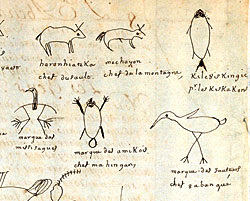 haronhiateka
chef du sault.
mechayon
chef de la montagne
Kileskiskingie
p.^r les Kiskakons
marque des
missisagues
marque des amikois
chef mahingan
marque des sauteurs
chef 8abangue